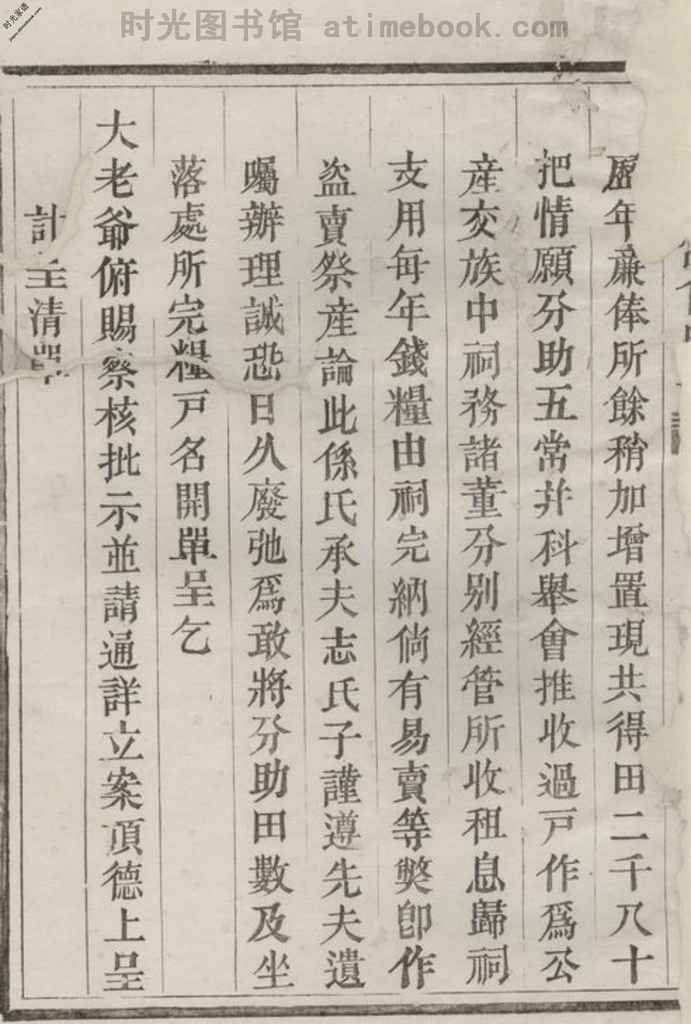 时光图书馆 atimebook.com
歷年亷俸所餘稍加增置現共得田二千八十
把情願分助五常幷科舉會推收過戸作爲公
産交族中祠務諸董分别經管所收租息歸祠
支用每年錢糧由祠完納倘有易賣等獘卽作
盗賣祭産論此係氏承夫志氏子謹遵先夫遺
囑辦理誠恐日久廢弛爲敢將分助田數及坐
落處所完糧戸名開單呈乞
大老爺俯賜察核批示並請通詳立案頂德上呈
計呈清單